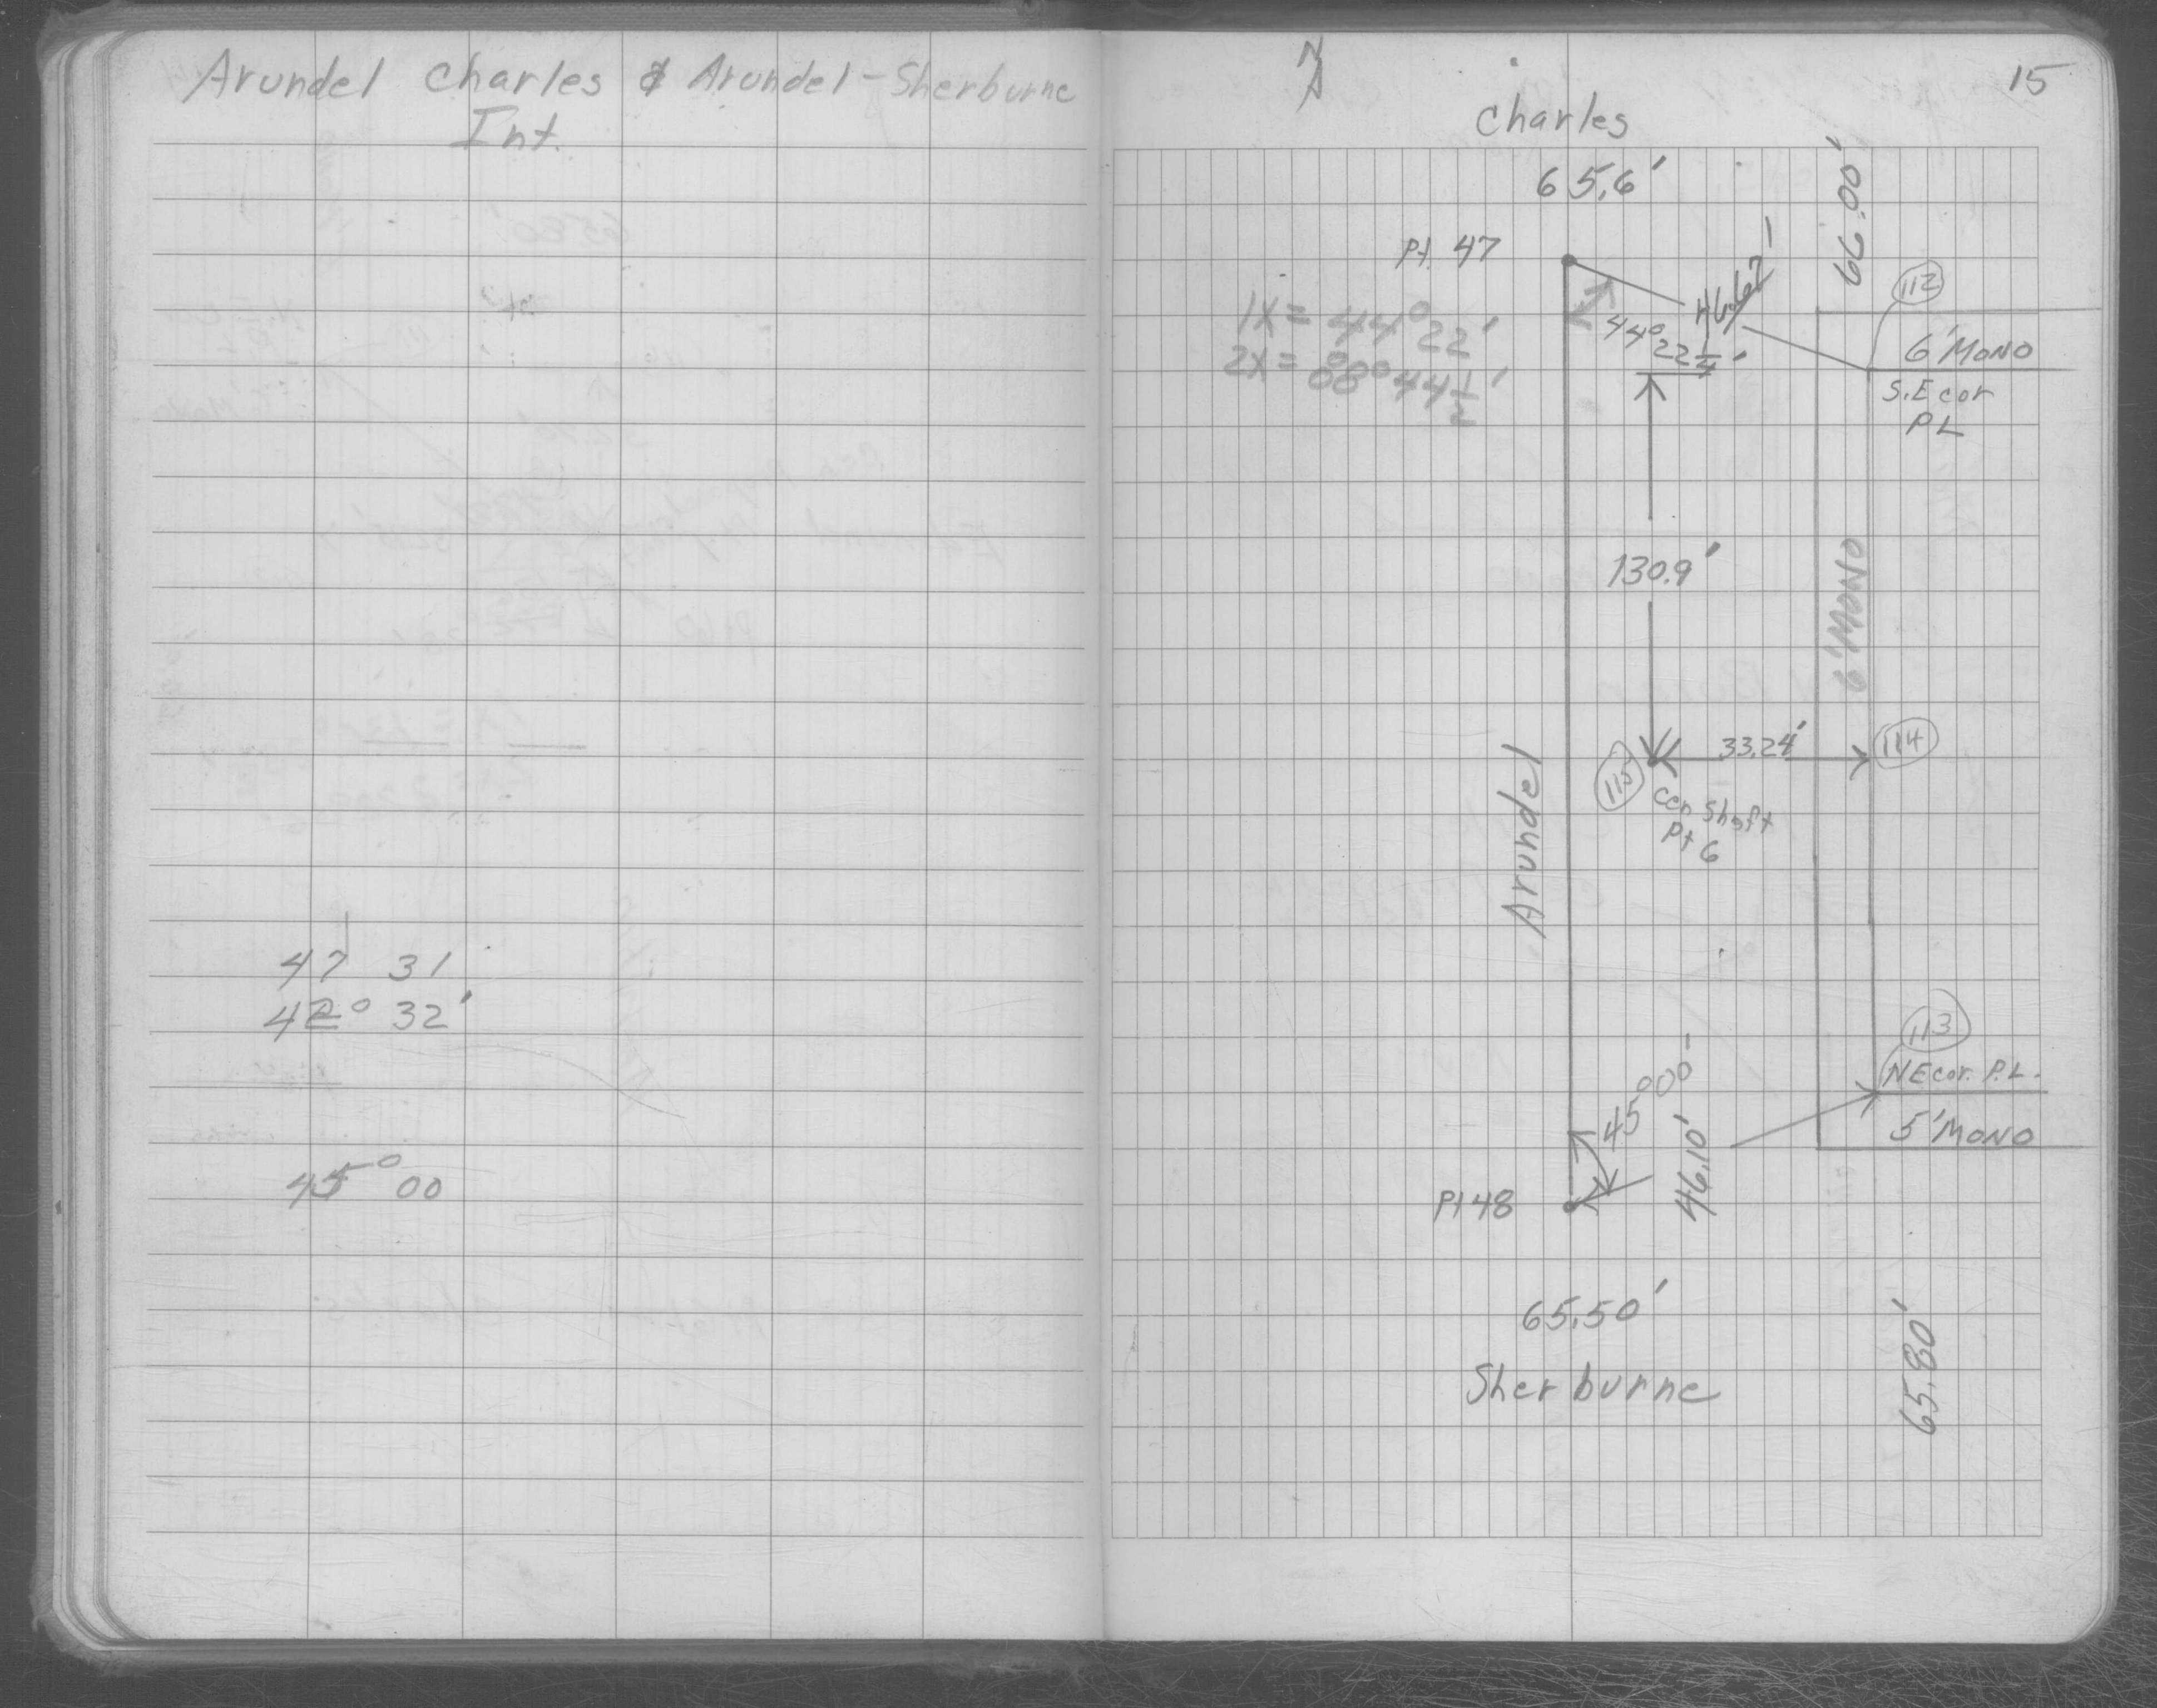 Arundel Charles & Arundel - Sherburne
Int.
47 31
42° 32'
45° 00
15
Charles
65.6'
66.00'
Pt. 47
1X = 44° 22'
2X = 88° 44 1/2'
46.67'
44° 22 1/4'
112
6' MONO
S.E cor
PL
130.9'
6' MONO
33.24'
114
115
cen shaft
Pt 6
Arundel
113
NE cor. P.L.
5' MONO
45° 00'
46.10'
Pt 48
65.50'
Sherburne
65.80'